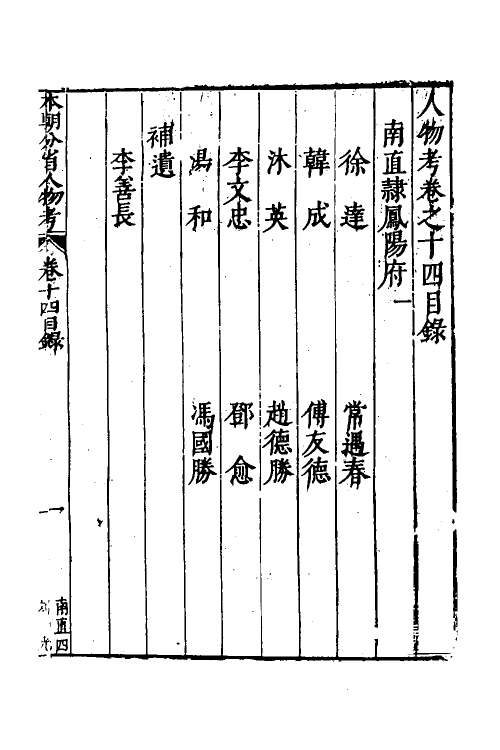 人物考卷之十四目錄
南直隷鳳陽府一
徐達　常遇春
韓成　傅友德
沐英　趙德勝
李文忠　鄧愈
湯和　馮國勝
補遺
李善長
本朝分省人物考　卷十四目錄　一
南直四